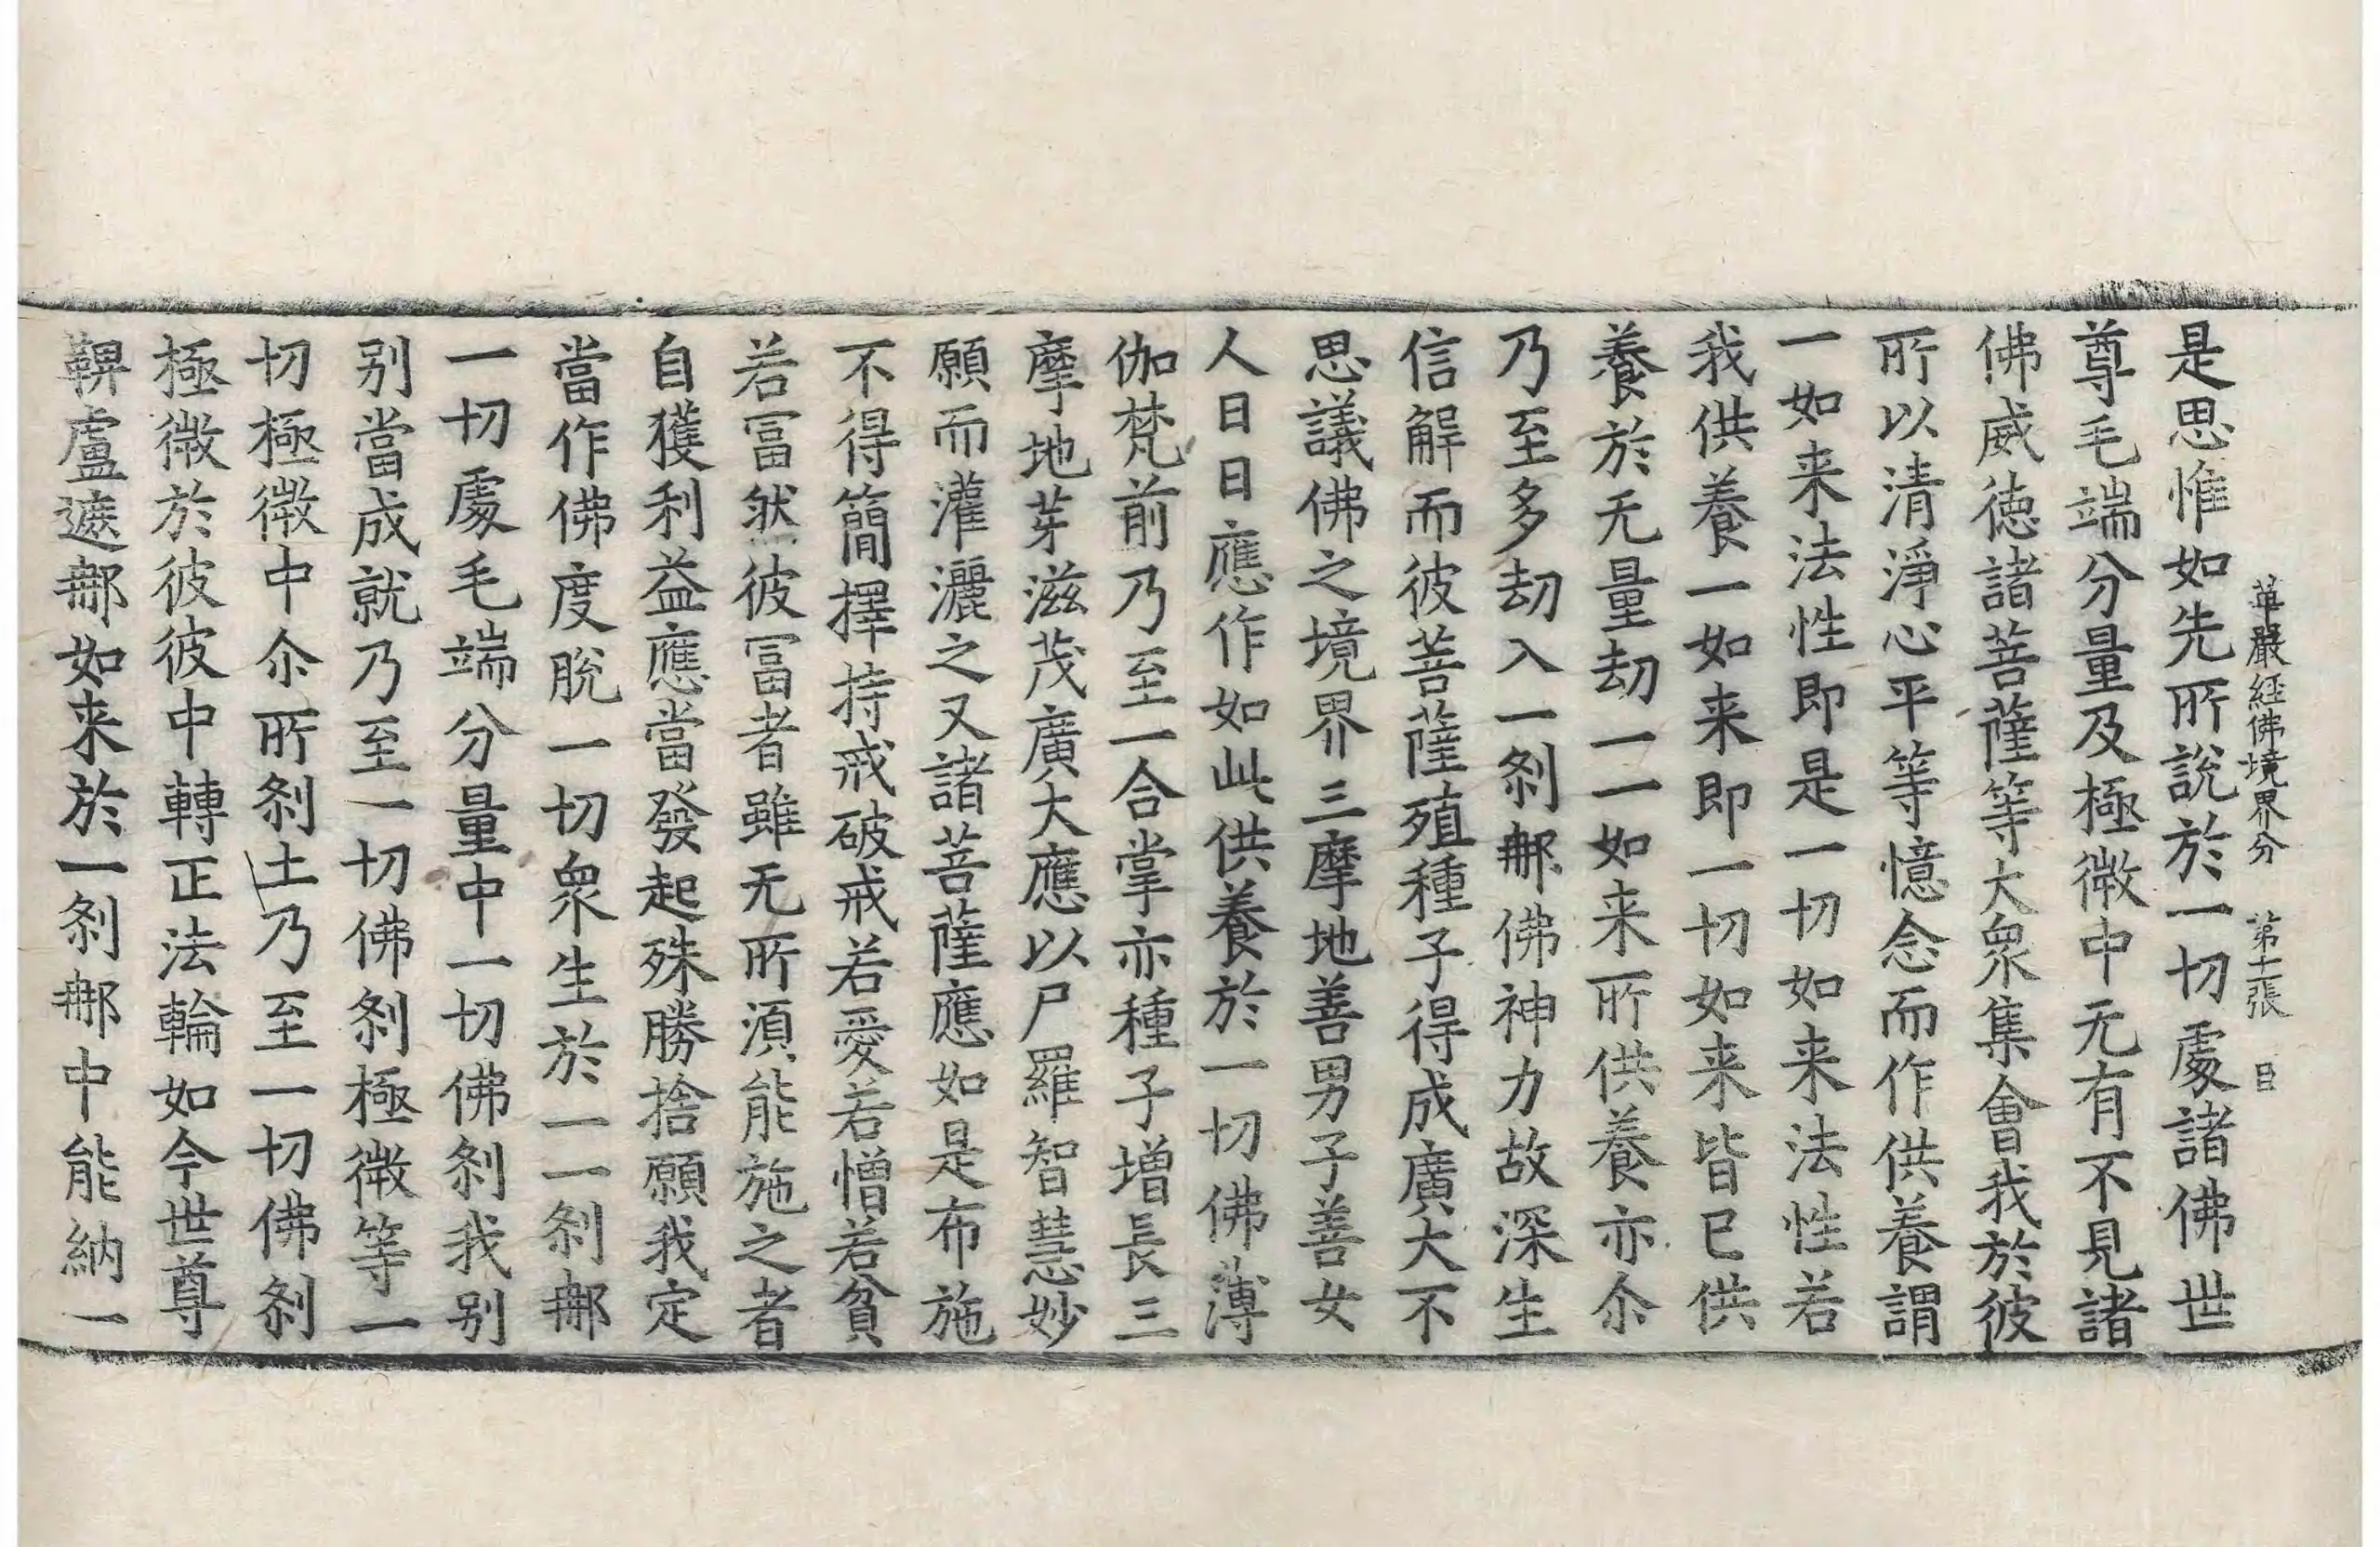 華嚴経佛境界分 第十二張 目
是思惟如先所說於一切處諸佛世
尊毛端分量及極微中无有不見諸
佛威徳諸菩薩等大衆集會我於彼
所以清淨心平等憶念而作供養謂
一如来法性即是一切如来法性若
我供養一如来即一切如来皆已供
養於无量劫一一如来所供養亦尒
乃至多劫入一刹那佛神力故深生
信解而彼菩薩殖種子得成廣大不
思議佛之境界三摩地善男子善女
人日日應作如此供養於一切佛薄
伽梵前乃至一合掌亦種子增長三
摩地芽滋茂廣大應以尸羅智慧妙
願而灌灑之又諸菩薩應如是布施
不得簡擇持戒破戒若愛若憎若貧
若冨然彼冨者雖无所湏能施之者
自獲利益應當發起殊勝捨願我定
當作佛度脫一切衆生於一一刹那
一切處毛端分量中一切佛刹我别
别當成就乃至一切佛刹極微等一
切極微中尒所刹土乃至一切佛刹
極微於彼彼中轉正法輪如今世尊
鞞盧遮那如来於一刹那中能納一